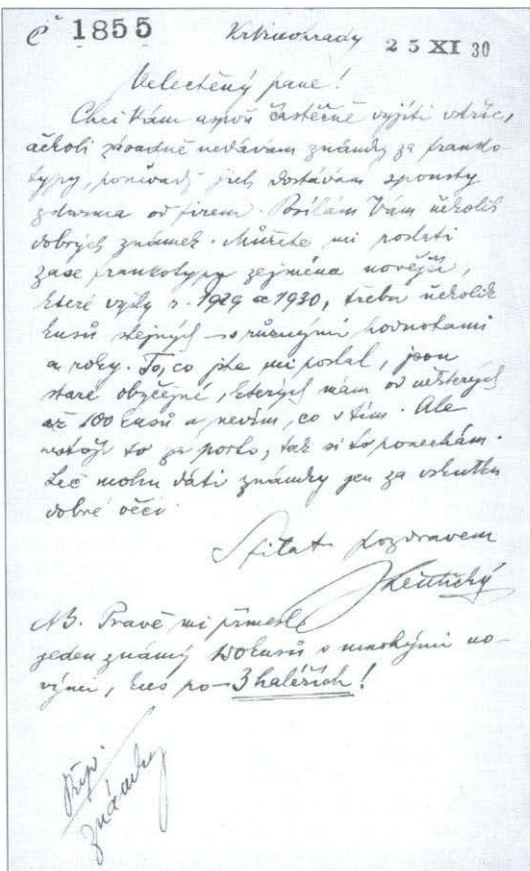 č 1855 25 XI 30
Velectěný pane!
Chci Vám aspoň částečně vyjíti vstříc,
ačkoli zásadně nedávám známky za franko-
typy, poněvadž jich dostávám spousty
zdarma od firem. Posílám Vám několik
dobrých známek. Můžete mi poslati
zase frankotypy zejména novější,
které vyšly r. 1929 a 1930, třeba několik
kusů stejných s různými hodnotami
a roky. To, co jste mi poslal, jsou
staré obyčejné, kterých mám od některých
až 100 kusů a nevím, co s tím. Ale
nestojí to za porto, tak si to ponechám.
Leč mohu dáti známky jen za vskutku
dobré věci.
S filat. pozdravem
NB. Právě mi přinesl
jeden známý kusů s no-
, kus po 3 haléřích!
Příp.
známky